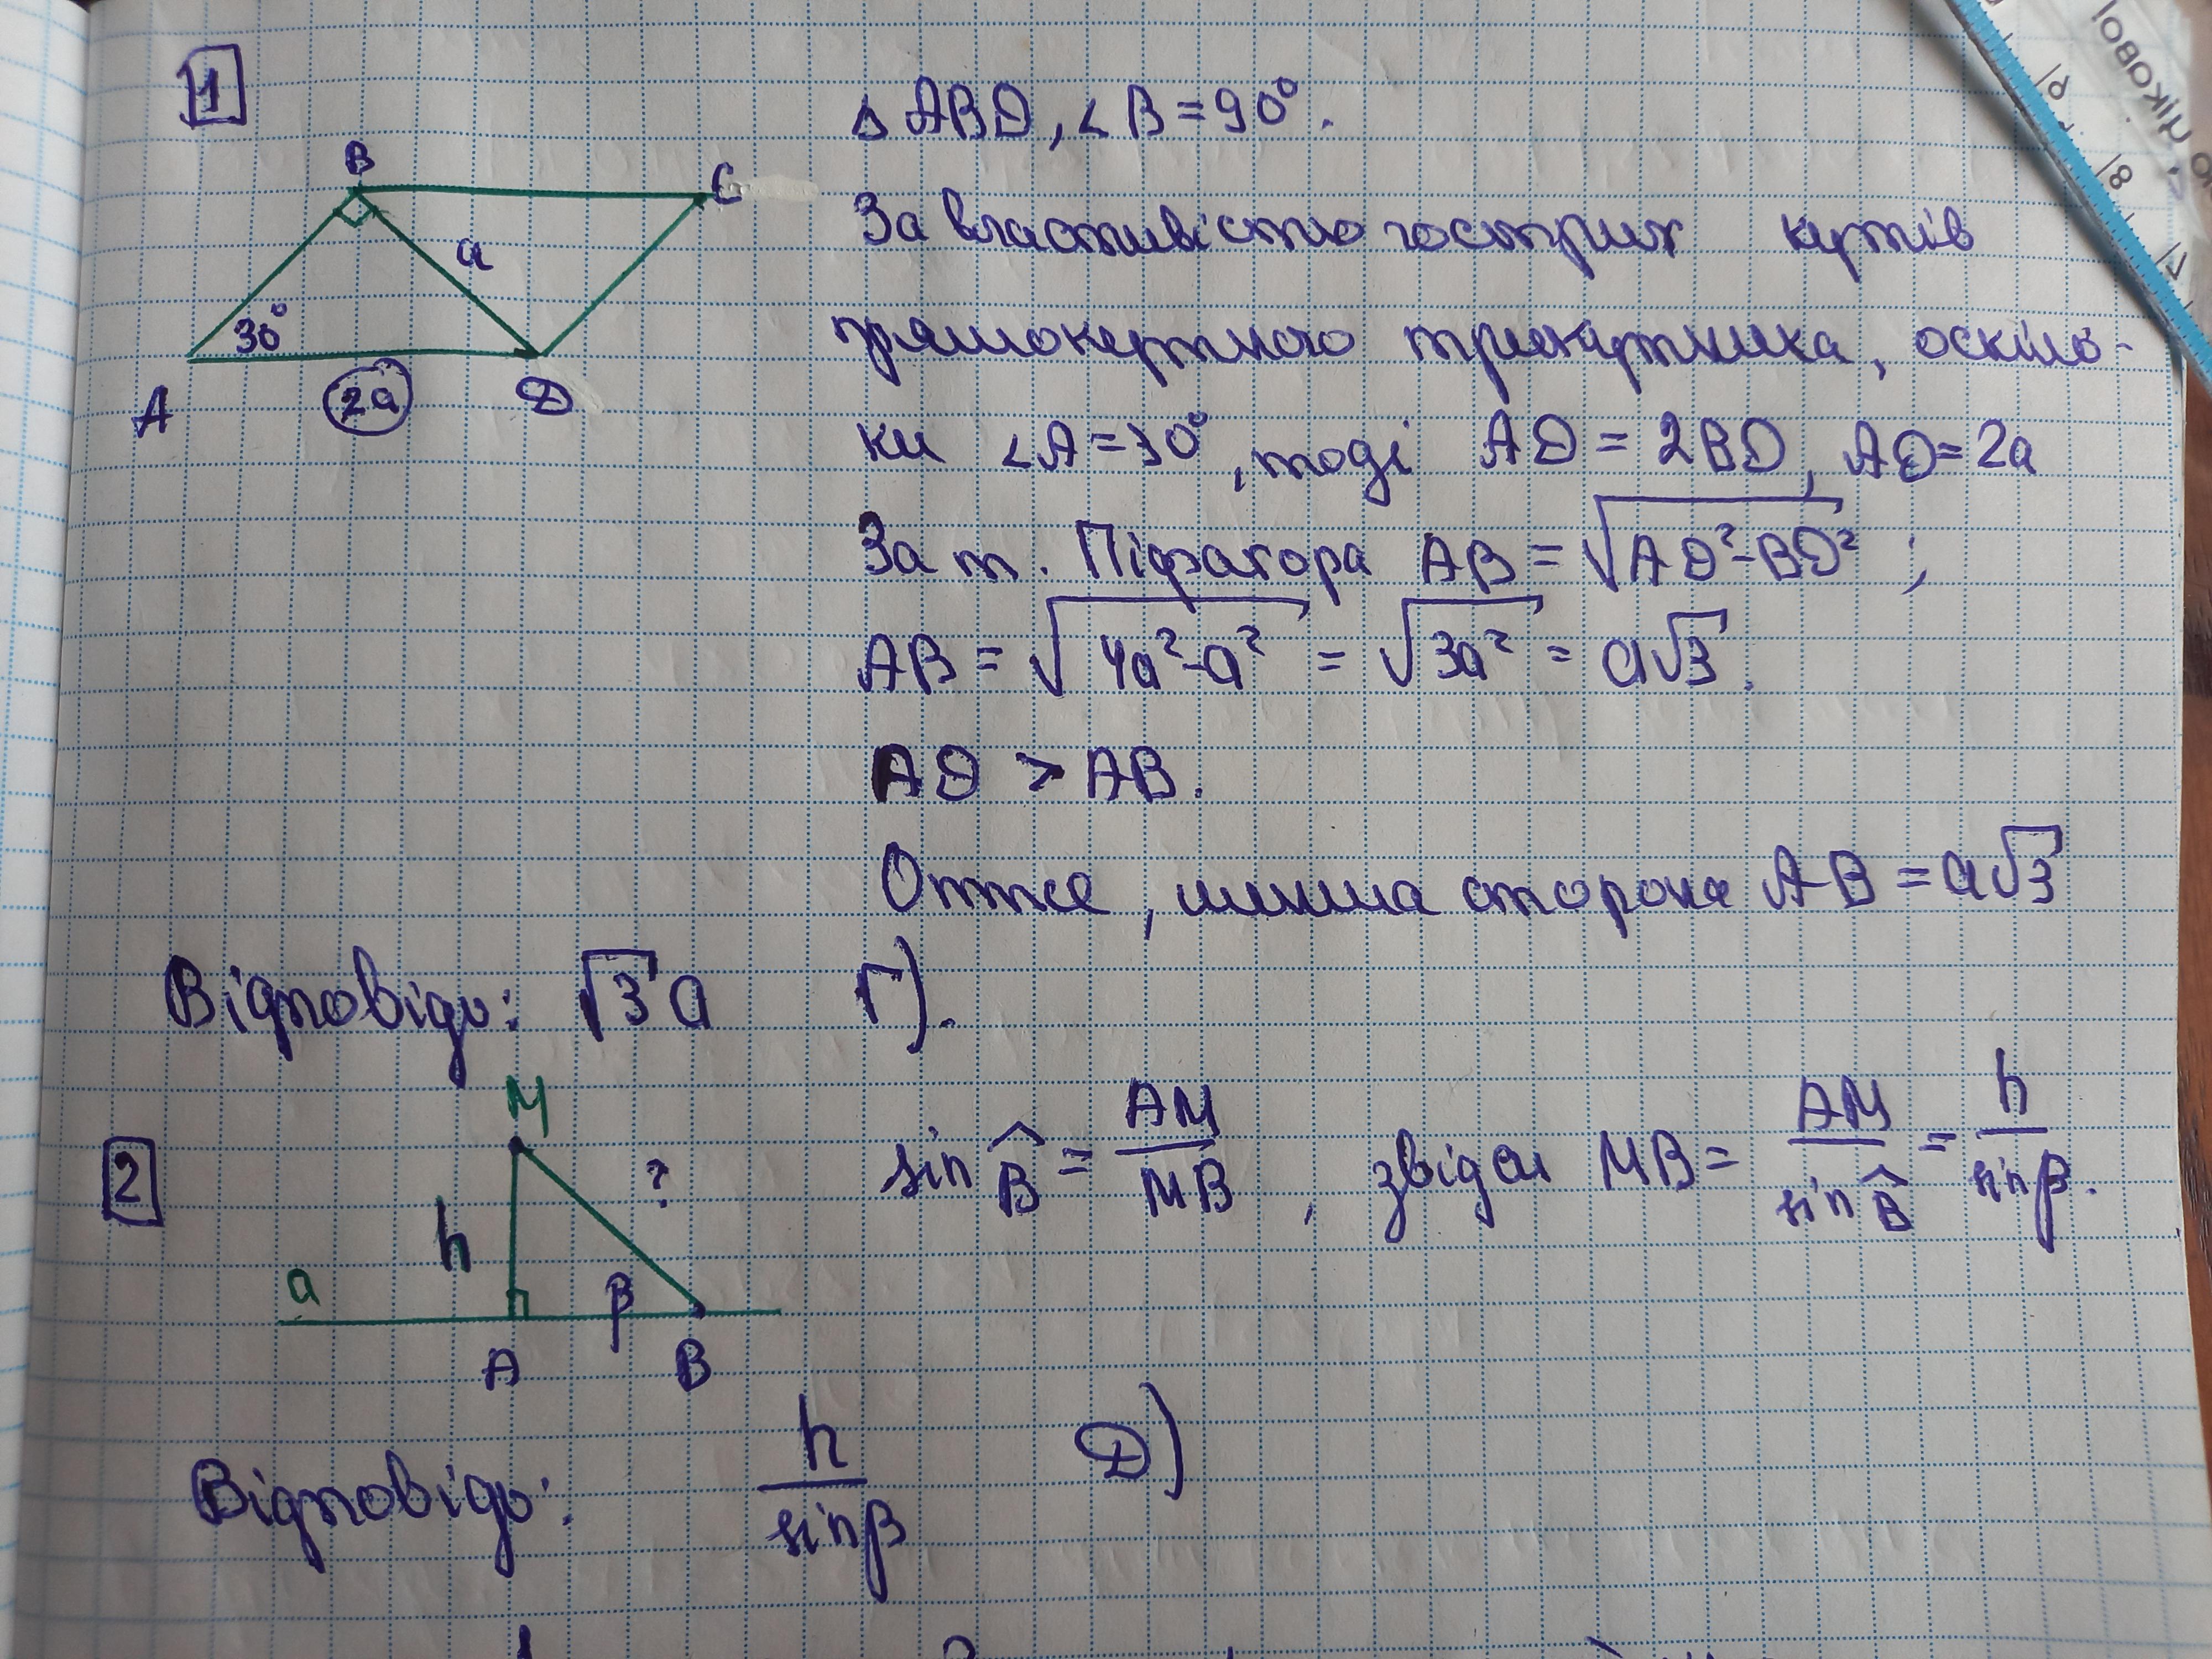 1
B
C
a
30°
A
2a
D
△ ABD, ∠B = 90°.
За властивістю гострих кутів
прямокутного трикутника, оскіль-
ки ∠A = 30°, тоді AD = 2BD, AD = 2a
За т. Піфагора AB = √(AD² - BD²) ;
AB = √(4a² - a²) = √(3a²) = a√3.
AD > AB.
Отже, менша сторона AB = a√3
Відповідь: √3 a Г).
2
M
?
h
a
β
A
B
sin B̂ = AM/MB , звідси MB = AM/sin B̂ = h/sin β.
Відповідь: h/sin β Д)